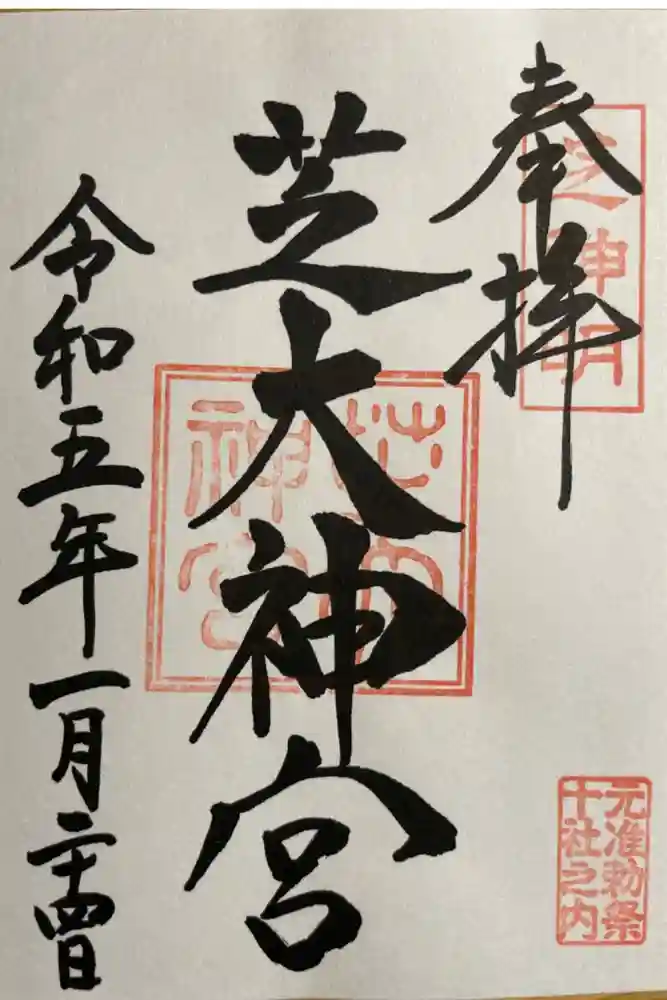 奉拝
芝神明
元准勅祭
十社之内
芝大神宮
令和五年一月二十四日